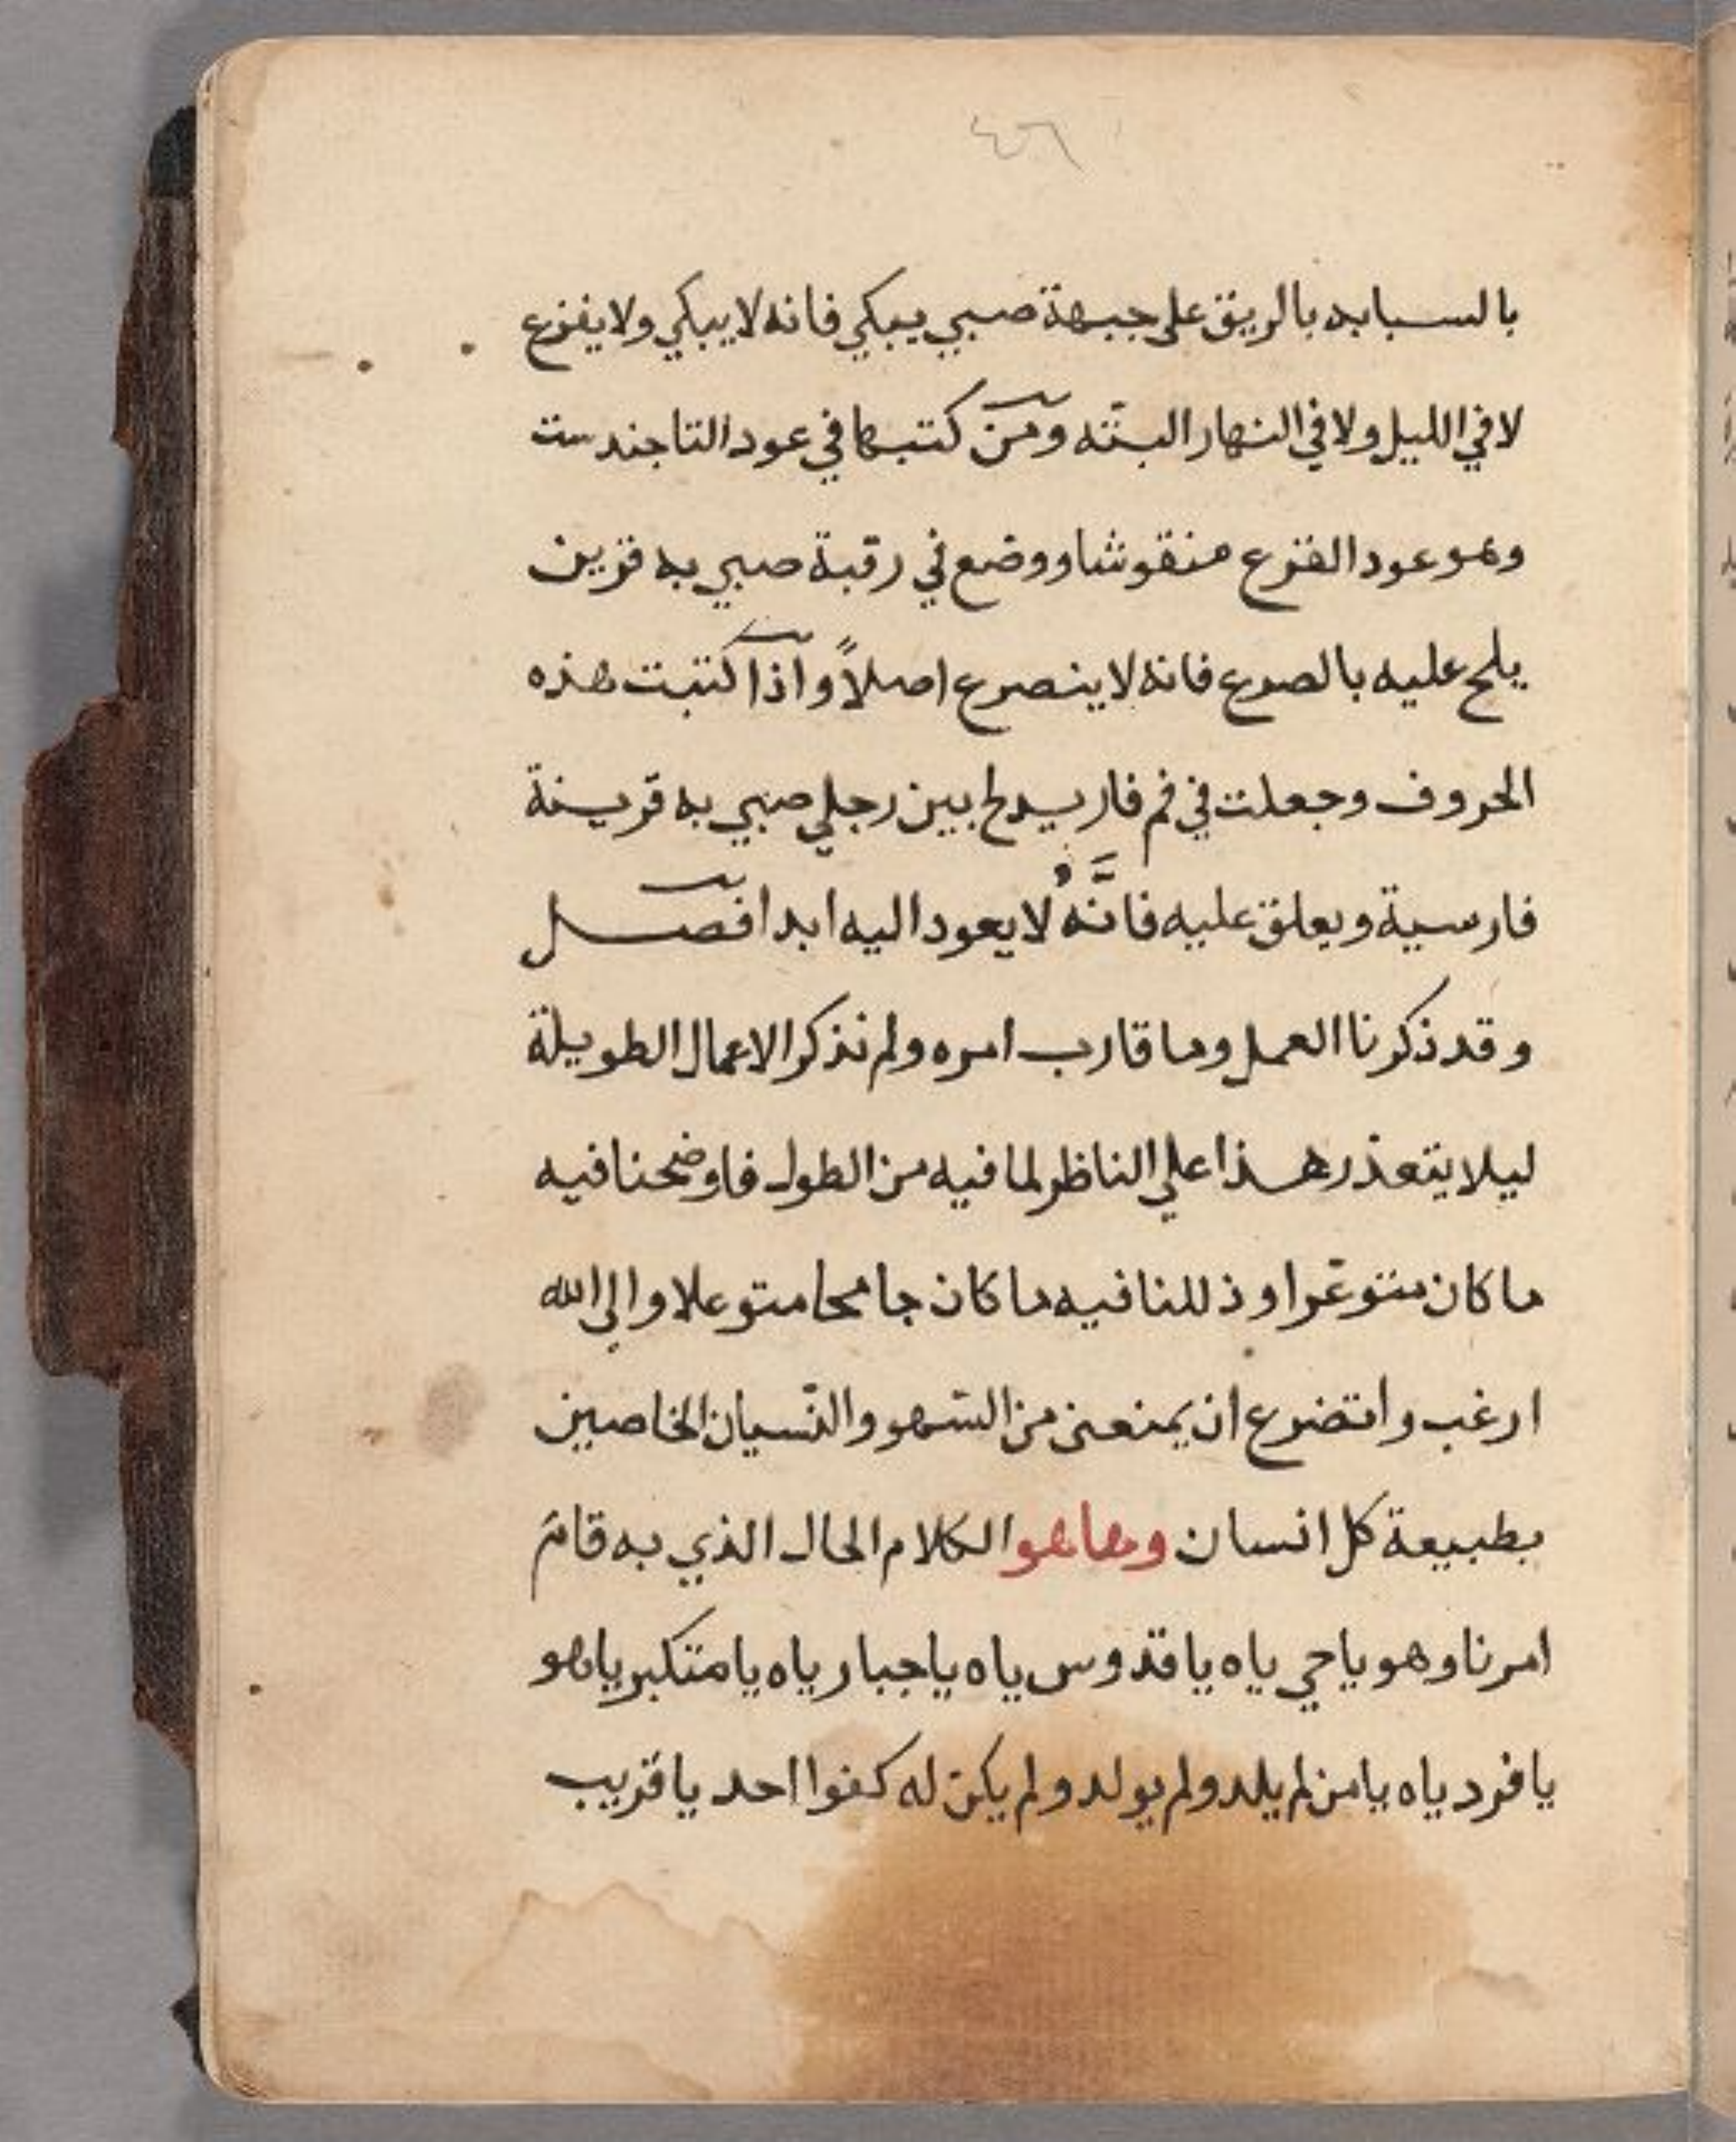 ٤٥٦
بالسبابه بالريق على جبهة صبي يبكي فانه لا يبكي ولا يفزع
لا في الليل ولا في النهار البتّه ومن كتبها في عود التاجندست
وهو عود القزع منقوشا ووضع في رقبة صبي به قرين
يلح عليه بالصرع فانه لا ينصرع اصلاً واذا كتبت هذه
الحروف وجعلت في فم فار يدلح بين رجلي صبي به قرينة
فارسية ويعلق عليه فانَّهُ لا يعود اليه ابدا فصل
وقد ذكرنا العمل وما قارب امره ولم نذكر الاعمال الطويلة
ليلا يتعذر هذا علي الناظر لما فيه من الطول فاوضحنا فيه
ما كان متوعّرا وذللنا فيه ما كان جامحا متوعلا والى الله
ارغب واتضرع ان يمنعنى من السّهو والنّسيان الخاصين
بطبيعة كل انسان وها هو الكلام الحال الذي به قام
امرنا وهو يا حي ياه يا قدوس ياه يا جبار ياه يا متكبر ياهو
يا فرد ياه يا من لم يلد ولم يولد ولم يكن له كفوا احد يا قريب